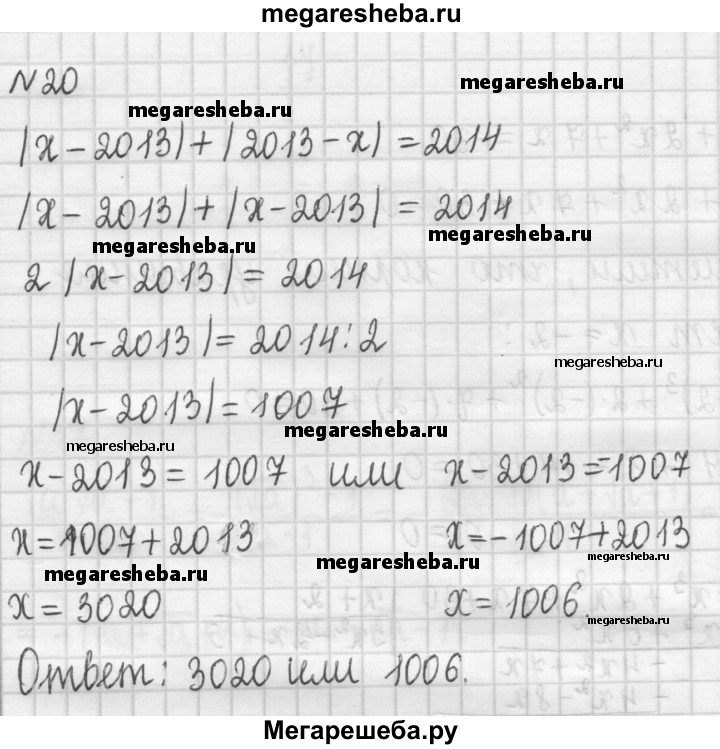 megaresheba.ru
№20
megaresheba.ru
megaresheba.ru
|x - 2013| + |2013 - x| = 2014
|x - 2013| + |x - 2013| = 2014
megaresheba.ru
megaresheba.ru
2 |x - 2013| = 2014
|x - 2013| = 2014 : 2
megaresheba.ru
|x - 2013| = 1007
megaresheba.ru
megaresheba.ru
x - 2013 = 1007 или x - 2013 = -1007
x = 1007 + 2013 x = -1007 + 2013
megaresheba.ru
megaresheba.ru
megaresheba.ru
x = 3020 x = 1006
megaresheba.ru
Ответ: 3020 или 1006.
Мегарешеба.ру